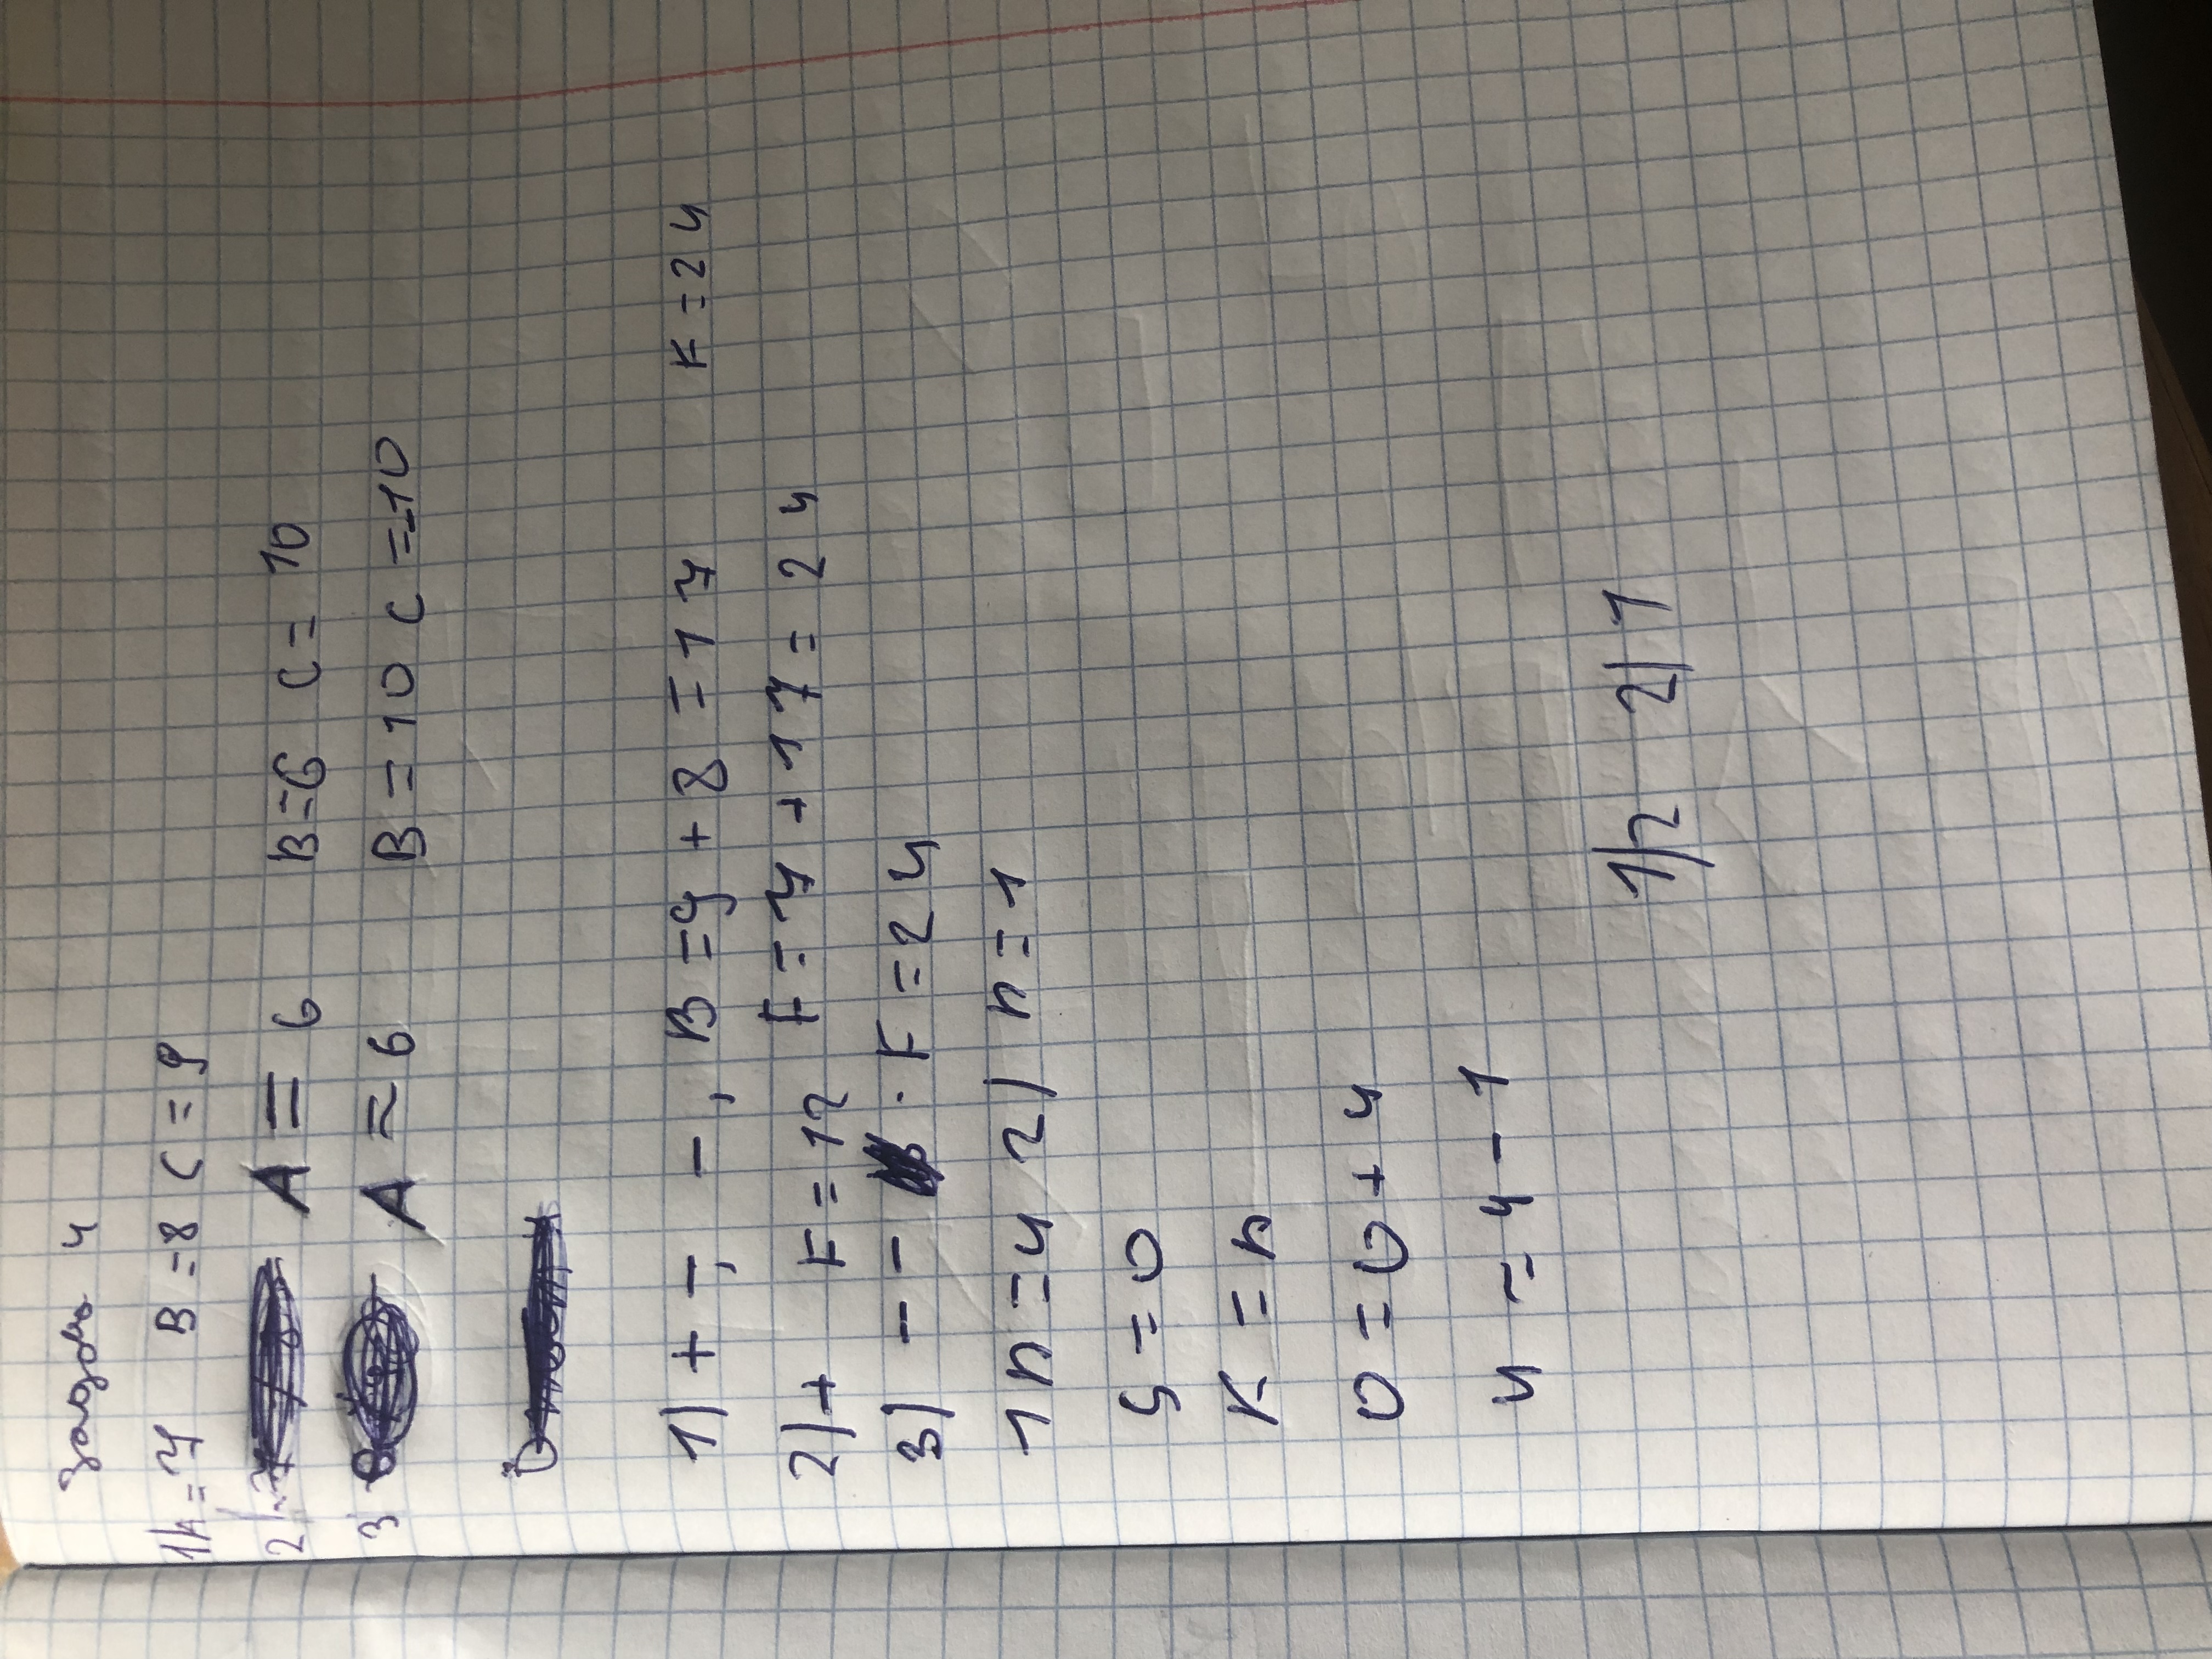 Задача 4
1) A = 7 B = 8 C = 9
2) A = 6 B = 6 C = 10
3 A = 6 B = 10 C = -10
1) + -, -, B = 9 + 8 = 17 F = 24
2) + F = 12 F = 7 + 17 = 24
3) - - F = 24
1 n = 4 2) n = 1
S = 0
K = n
0 = 0 + 4
4 = 4 - 1
1) 2 2) 1